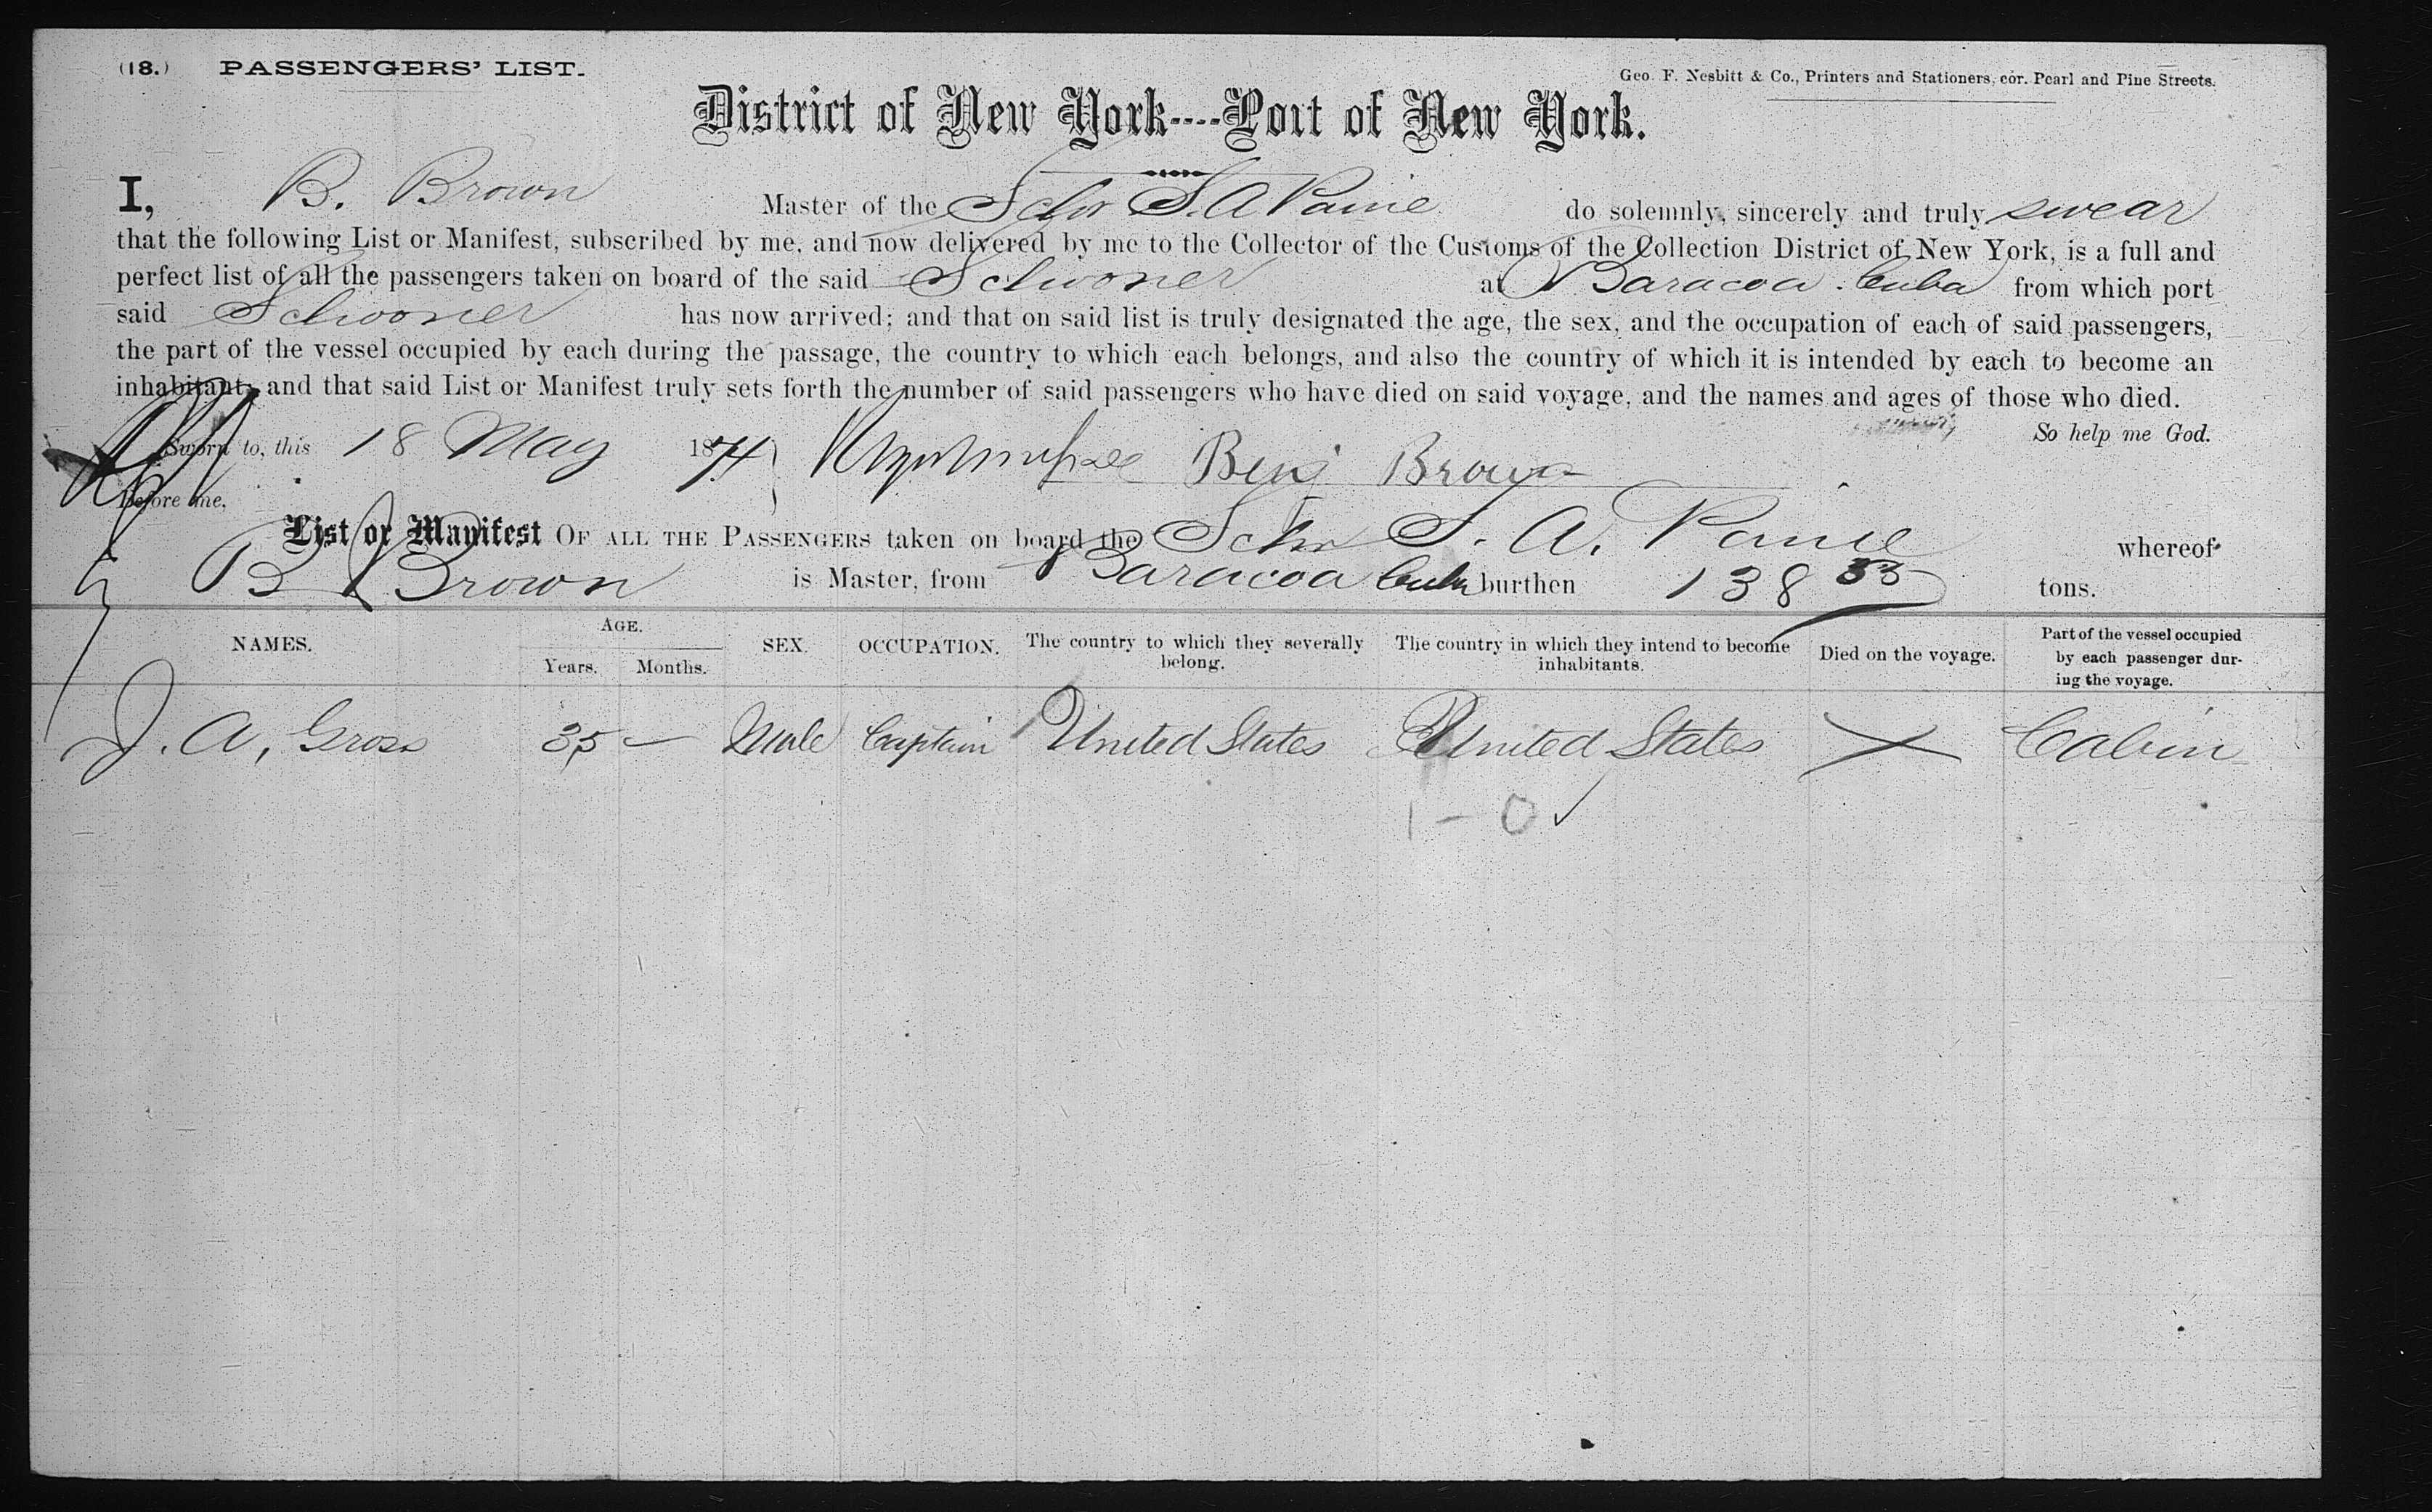 (18.) PASSENGERS' LIST.
Geo. F. Nesbitt & Co., Printers and Stationers, cor. Pearl and Pine Streets.
District of New York----Port of New York.
I, B. Brown Master of the Schr S. A Paine do solemnly, sincerely and truly swear
that the following List or Manifest, subscribed by me, and now delivered by me to the Collector of the Customs of the Collection District of New York, is a full and
perfect list of all the passengers taken on board of the said Schooner at Baracoa. Cuba from which port
said Schooner has now arrived; and that on said list is truly designated the age, the sex, and the occupation of each of said passengers,
the part of the vessel occupied by each during the passage, the country to which each belongs, and also the country of which it is intended by each to become an
inhabitant; and that said List or Manifest truly sets forth the number of said passengers who have died on said voyage, and the names and ages of those who died.
So help me God.
Sworn to, this 18 May 1874 Benj Brown
Before me,
List or Manifest OF ALL THE PASSENGERS taken on board the Schr S. A. Paine whereof
B Brown is Master, from Baracoa Cuba burthen 138 33 tons.
NAMES. AGE. Years. Months. SEX. OCCUPATION. The country to which they severally belong. The country in which they intend to become inhabitants. Died on the voyage. Part of the vessel occupied by each passenger during the voyage.
J. A, Gross 35 — Male Captain United States United States Cabin
1 - 0 ✓